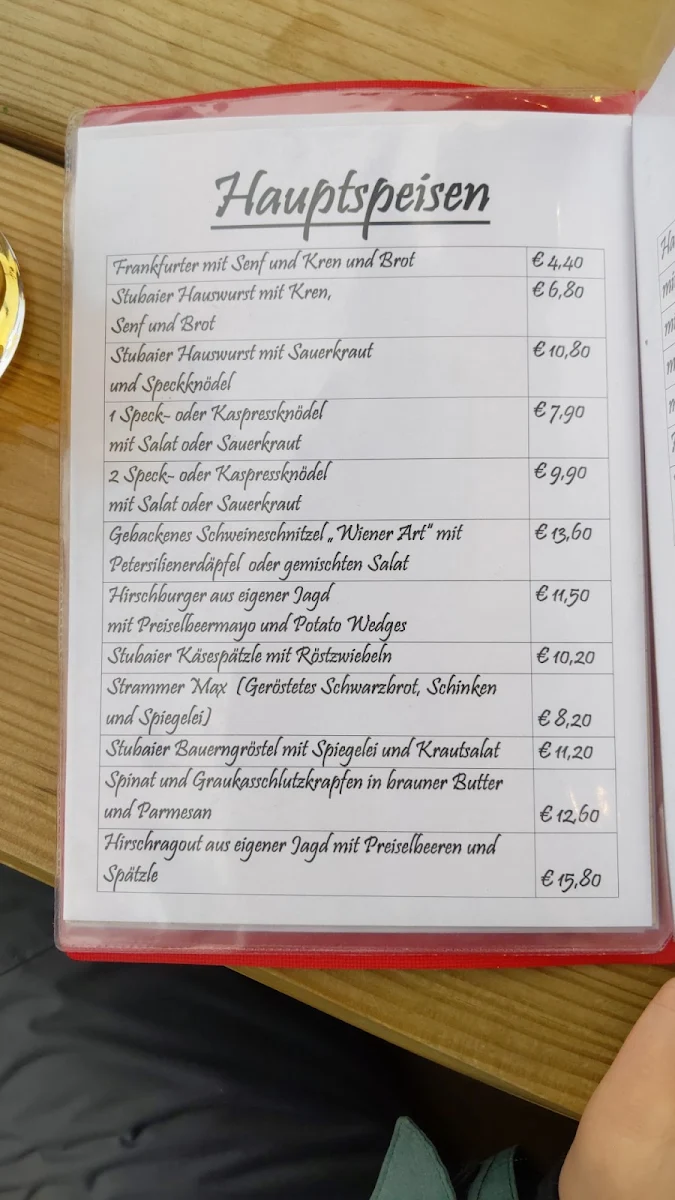 Hauptspeisen
Frankfurter mit Senf und Kren und Brot € 4,40
Stubaier Hauswurst mit Kren, € 6,80
Senf und Brot
Stubaier Hauswurst mit Sauerkraut € 10,80
und Speckknödel
1 Speck- oder Kaspressknödel € 7,90
mit Salat oder Sauerkraut
2 Speck- oder Kaspressknödel € 9,90
mit Salat oder Sauerkraut
Gebackenes Schweineschnitzel „Wiener Art" mit € 13,60
Petersilienerdäpfel oder gemischten Salat
Hirschburger aus eigener Jagd € 11,50
mit Preiselbeermayo und Potato Wedges
Stubaier Käsespätzle mit Röstzwiebeln € 10,20
Strammer Max (Geröstetes Schwarzbrot, Schinken
und Spiegelei) € 8,20
Stubaier Bauerngröstel mit Spiegelei und Krautsalat € 11,20
Spinat und Graukasschlutzkrapfen in brauner Butter
und Parmesan € 12,60
Hirschragout aus eigener Jagd mit Preiselbeeren und
Spätzle € 15,80